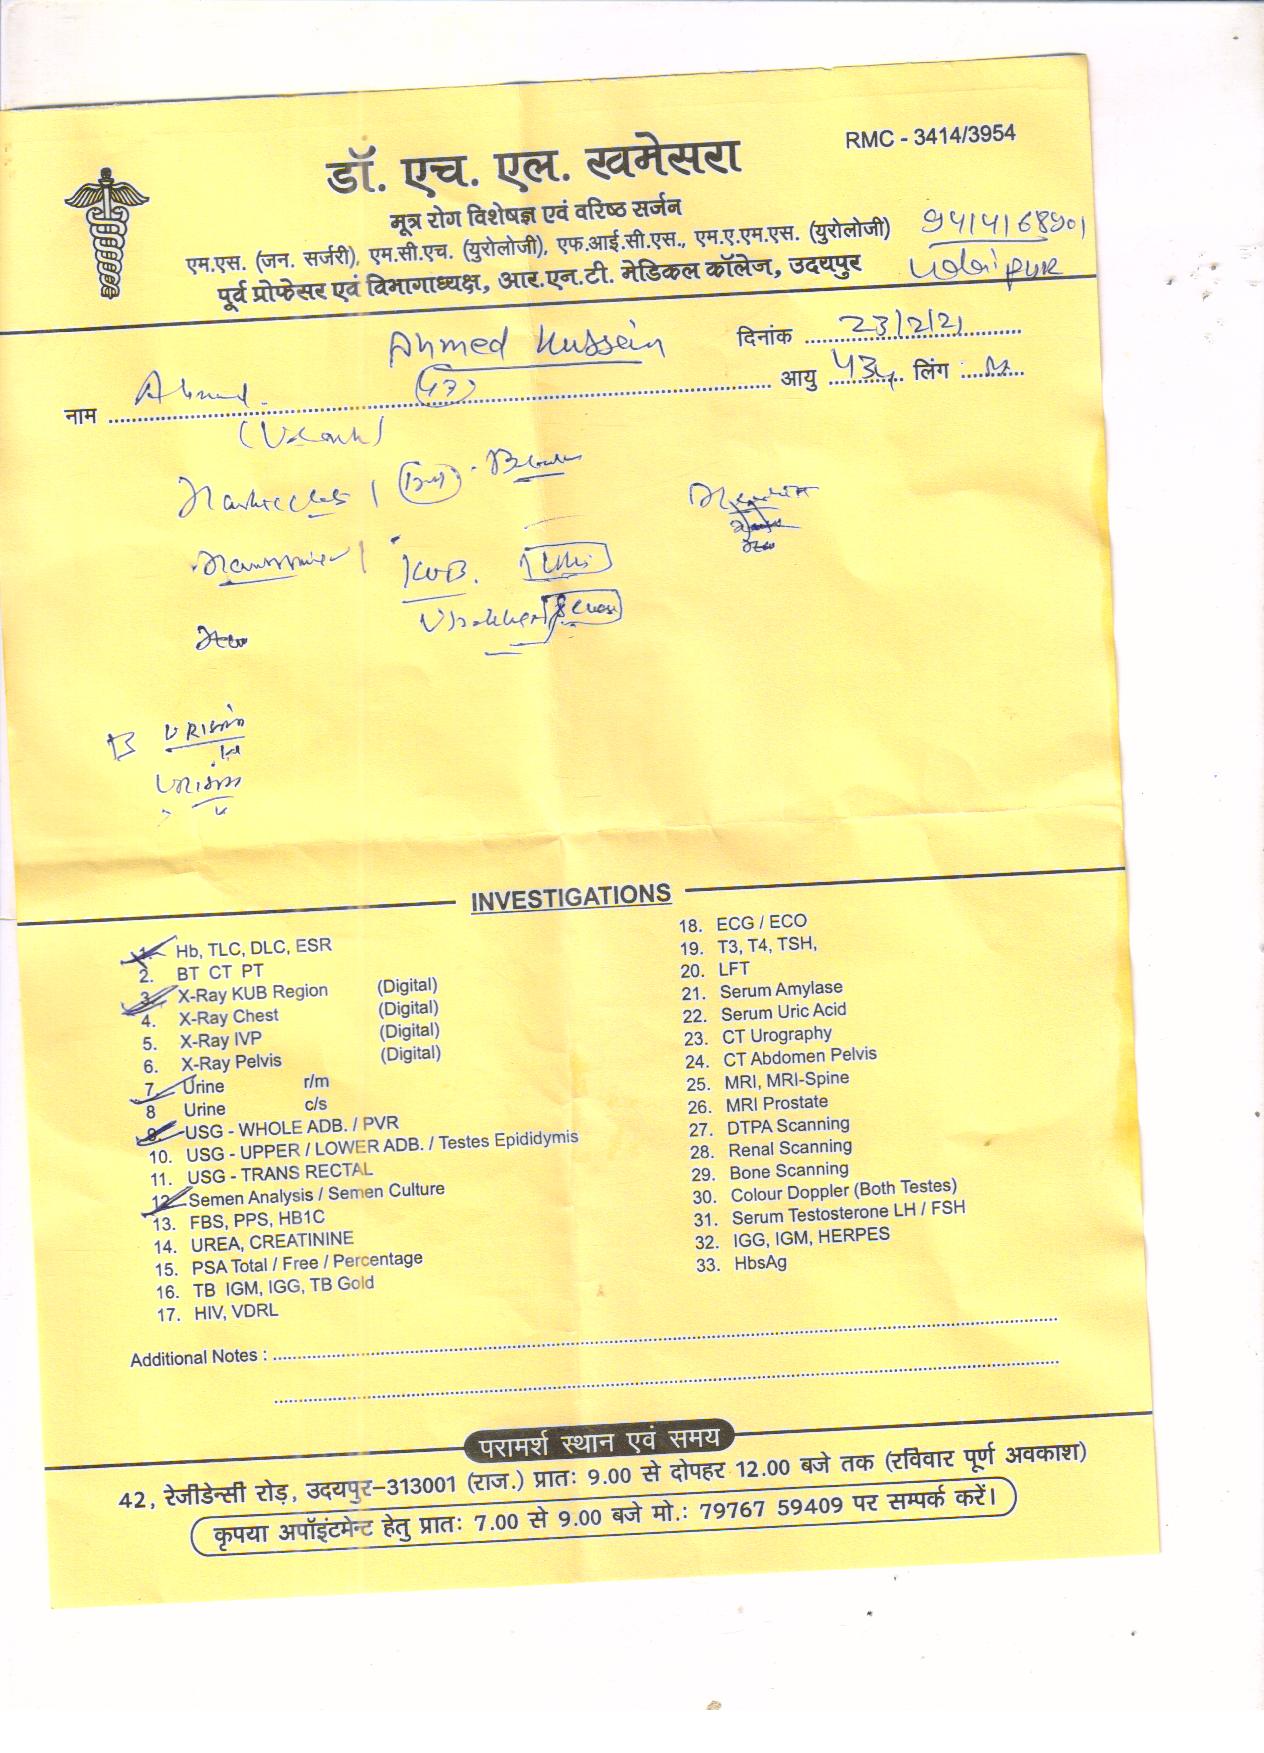 RMC - 3414/3954
डॉ. एच. एल. खमेसरा
मूत्र रोग विशेषज्ञ एवं वरिष्ठ सर्जन
एम.एस. (जन. सर्जरी), एम.सी.एच. (युरोलोजी), एफ.आई.सी.एस., एम.ए.एम.एस. (युरोलोजी)
पूर्व प्रोफेसर एवं विभागाध्यक्ष, आर.एन.टी. मेडिकल कॉलेज, उदयपुर
Udaipur
Ahmed Hussein
दिनांक 23/2/21
नाम Ahmed
आयु 43y लिंग : M
KUB.
INVESTIGATIONS
1. Hb, TLC, DLC, ESR
2. BT CT PT
3. X-Ray KUB Region (Digital)
4. X-Ray Chest (Digital)
5. X-Ray IVP (Digital)
6. X-Ray Pelvis (Digital)
7. Urine r/m
8 Urine c/s
9. USG - WHOLE ADB. / PVR
10. USG - UPPER / LOWER ADB. / Testes Epididymis
11. USG - TRANS RECTAL
12. Semen Analysis / Semen Culture
13. FBS, PPS, HB1C
14. UREA, CREATININE
15. PSA Total / Free / Percentage
16. TB IGM, IGG, TB Gold
17. HIV, VDRL
18. ECG / ECO
19. T3, T4, TSH,
20. LFT
21. Serum Amylase
22. Serum Uric Acid
23. CT Urography
24. CT Abdomen Pelvis
25. MRI, MRI-Spine
26. MRI Prostate
27. DTPA Scanning
28. Renal Scanning
29. Bone Scanning
30. Colour Doppler (Both Testes)
31. Serum Testosterone LH / FSH
32. IGG, IGM, HERPES
33. HbsAg
Additional Notes :
परामर्श स्थान एवं समय
42, रेजीडेन्सी रोड़, उदयपुर-313001 (राज.) प्रातः 9.00 से दोपहर 12.00 बजे तक (रविवार पूर्ण अवकाश)
कृपया अपॉइंटमेन्ट हेतु प्रातः 7.00 से 9.00 बजे मो.: 79767 59409 पर सम्पर्क करें।